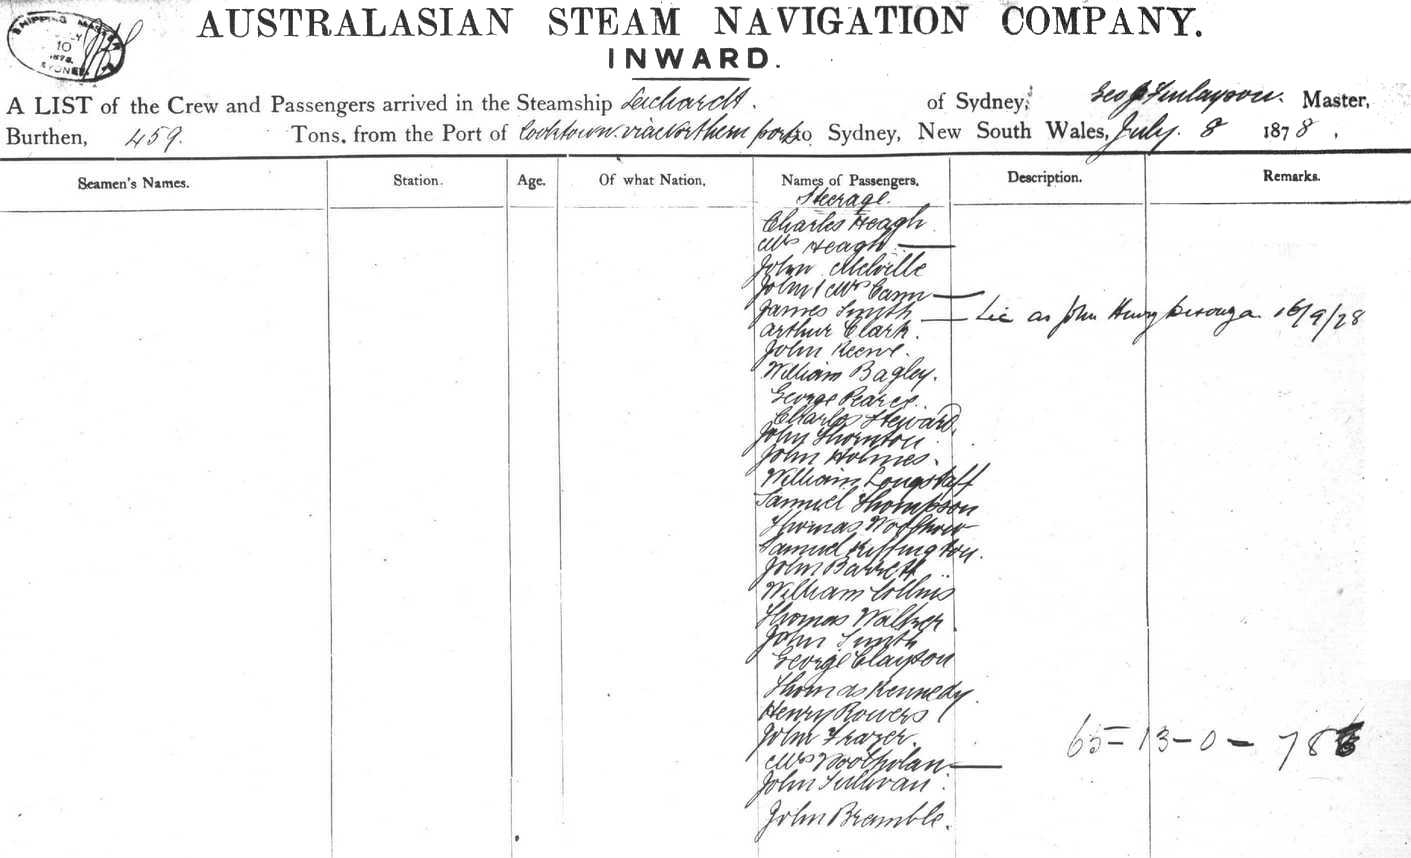 SHIPPING MASTER
JULY
10
1878.
SYDNEY
AUSTRALASIAN STEAM NAVIGATION COMPANY.
INWARD.
A LIST of the Crew and Passengers arrived in the Steamship Leichardt. of Sydney, Geo Finlayson. Master,
Burthen, 459. Tons, from the Port of Cooktown via Northern ports to Sydney, New South Wales, July. 8 1878,
Seamen's Names. Station. Age. Of what Nation, Names of Passengers, Description. Remarks.
Steerage
Charles Heagh
Mrs Heagh
John Melville
John & Mrs Cann
James Smith
as John Henry 16/9/28
Arthur Clark.
John Keene.
William Bagley.
George Pearce.
Charles Steward.
John Thornton
John Holmes.
William Longstaff
Samuel Thompson
Thomas
Samuel Kiffington.
John Barrett
William Collins
Thomas Walker
John Smith
George Clayson
Thomas Kennedy.
Henry Rowers
John Frazer.
65-13-0-78
Mrs
John Sullivan.
John Bramble.